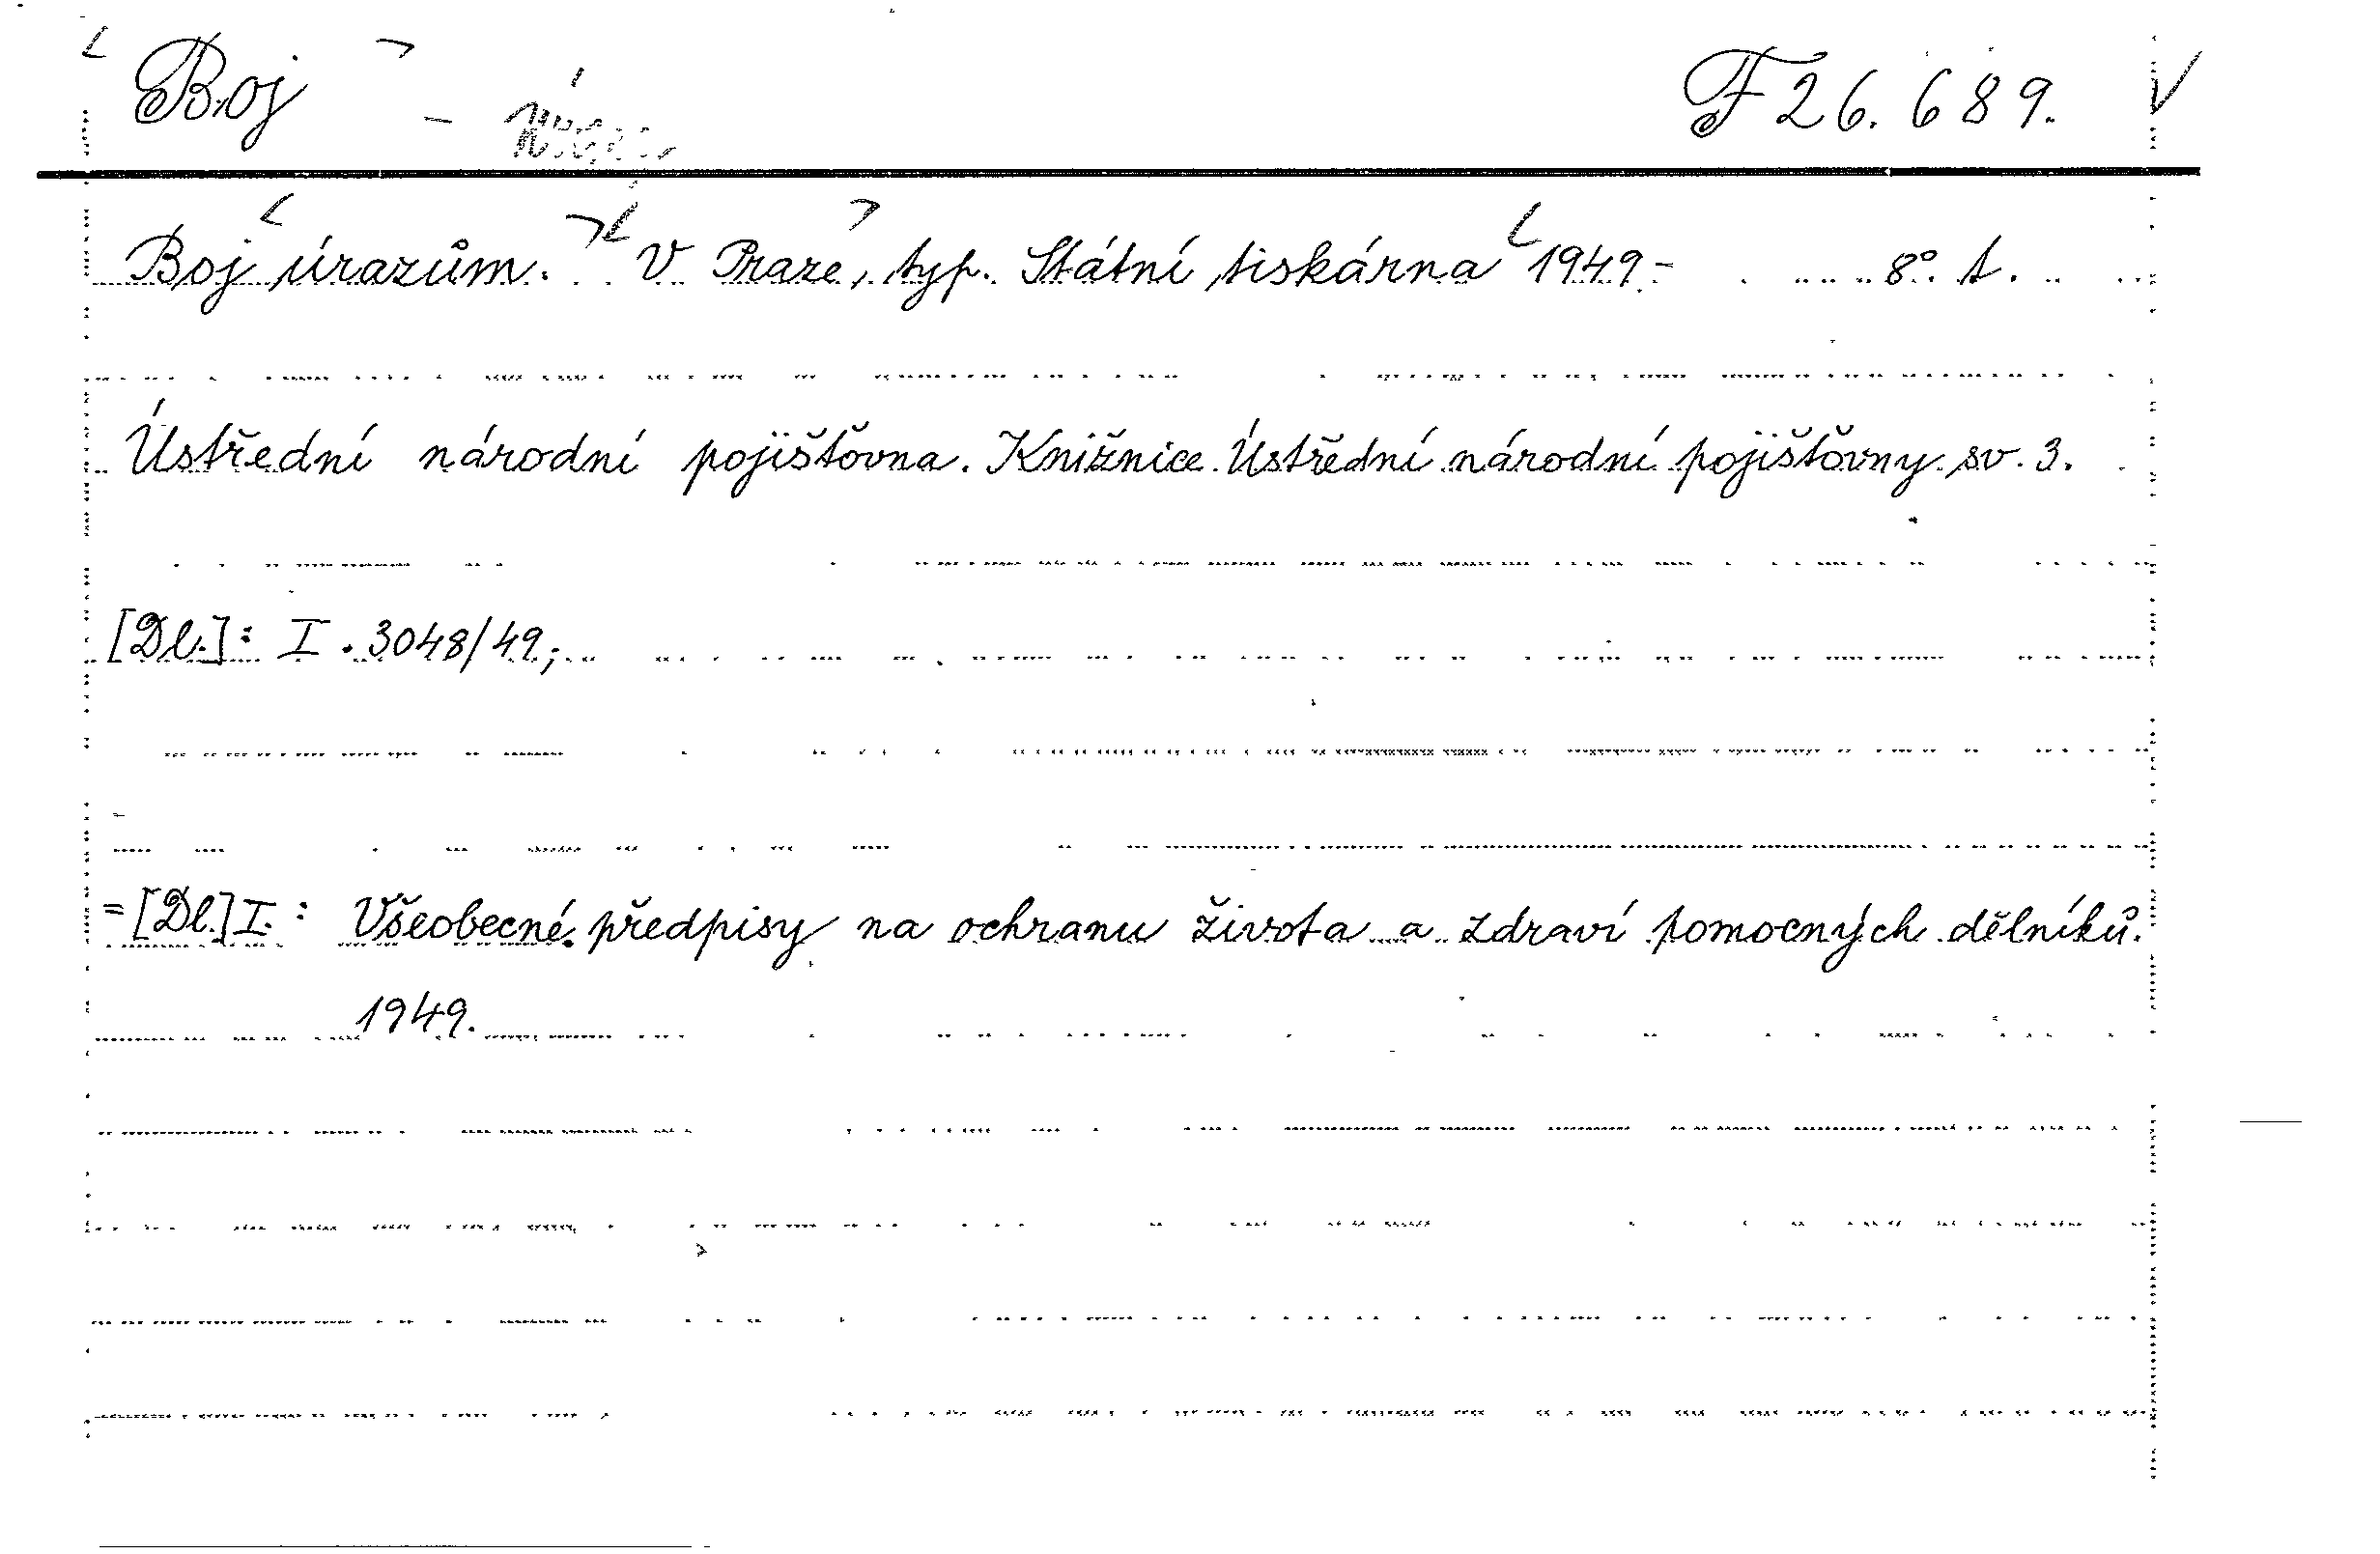 Boj F 26.689.
Boj úrazům. V Praze, typ. Státní tiskárna 1949- 8° t.
Ústřední národní pojišťovna. Knižnice Ústřední národní pojišťovny sv. 3.
[Dl.]: I. 3048/49;
=[Dl.] I.: Všeobecné předpisy na ochranu života a zdraví pomocných dělníků.
1949.